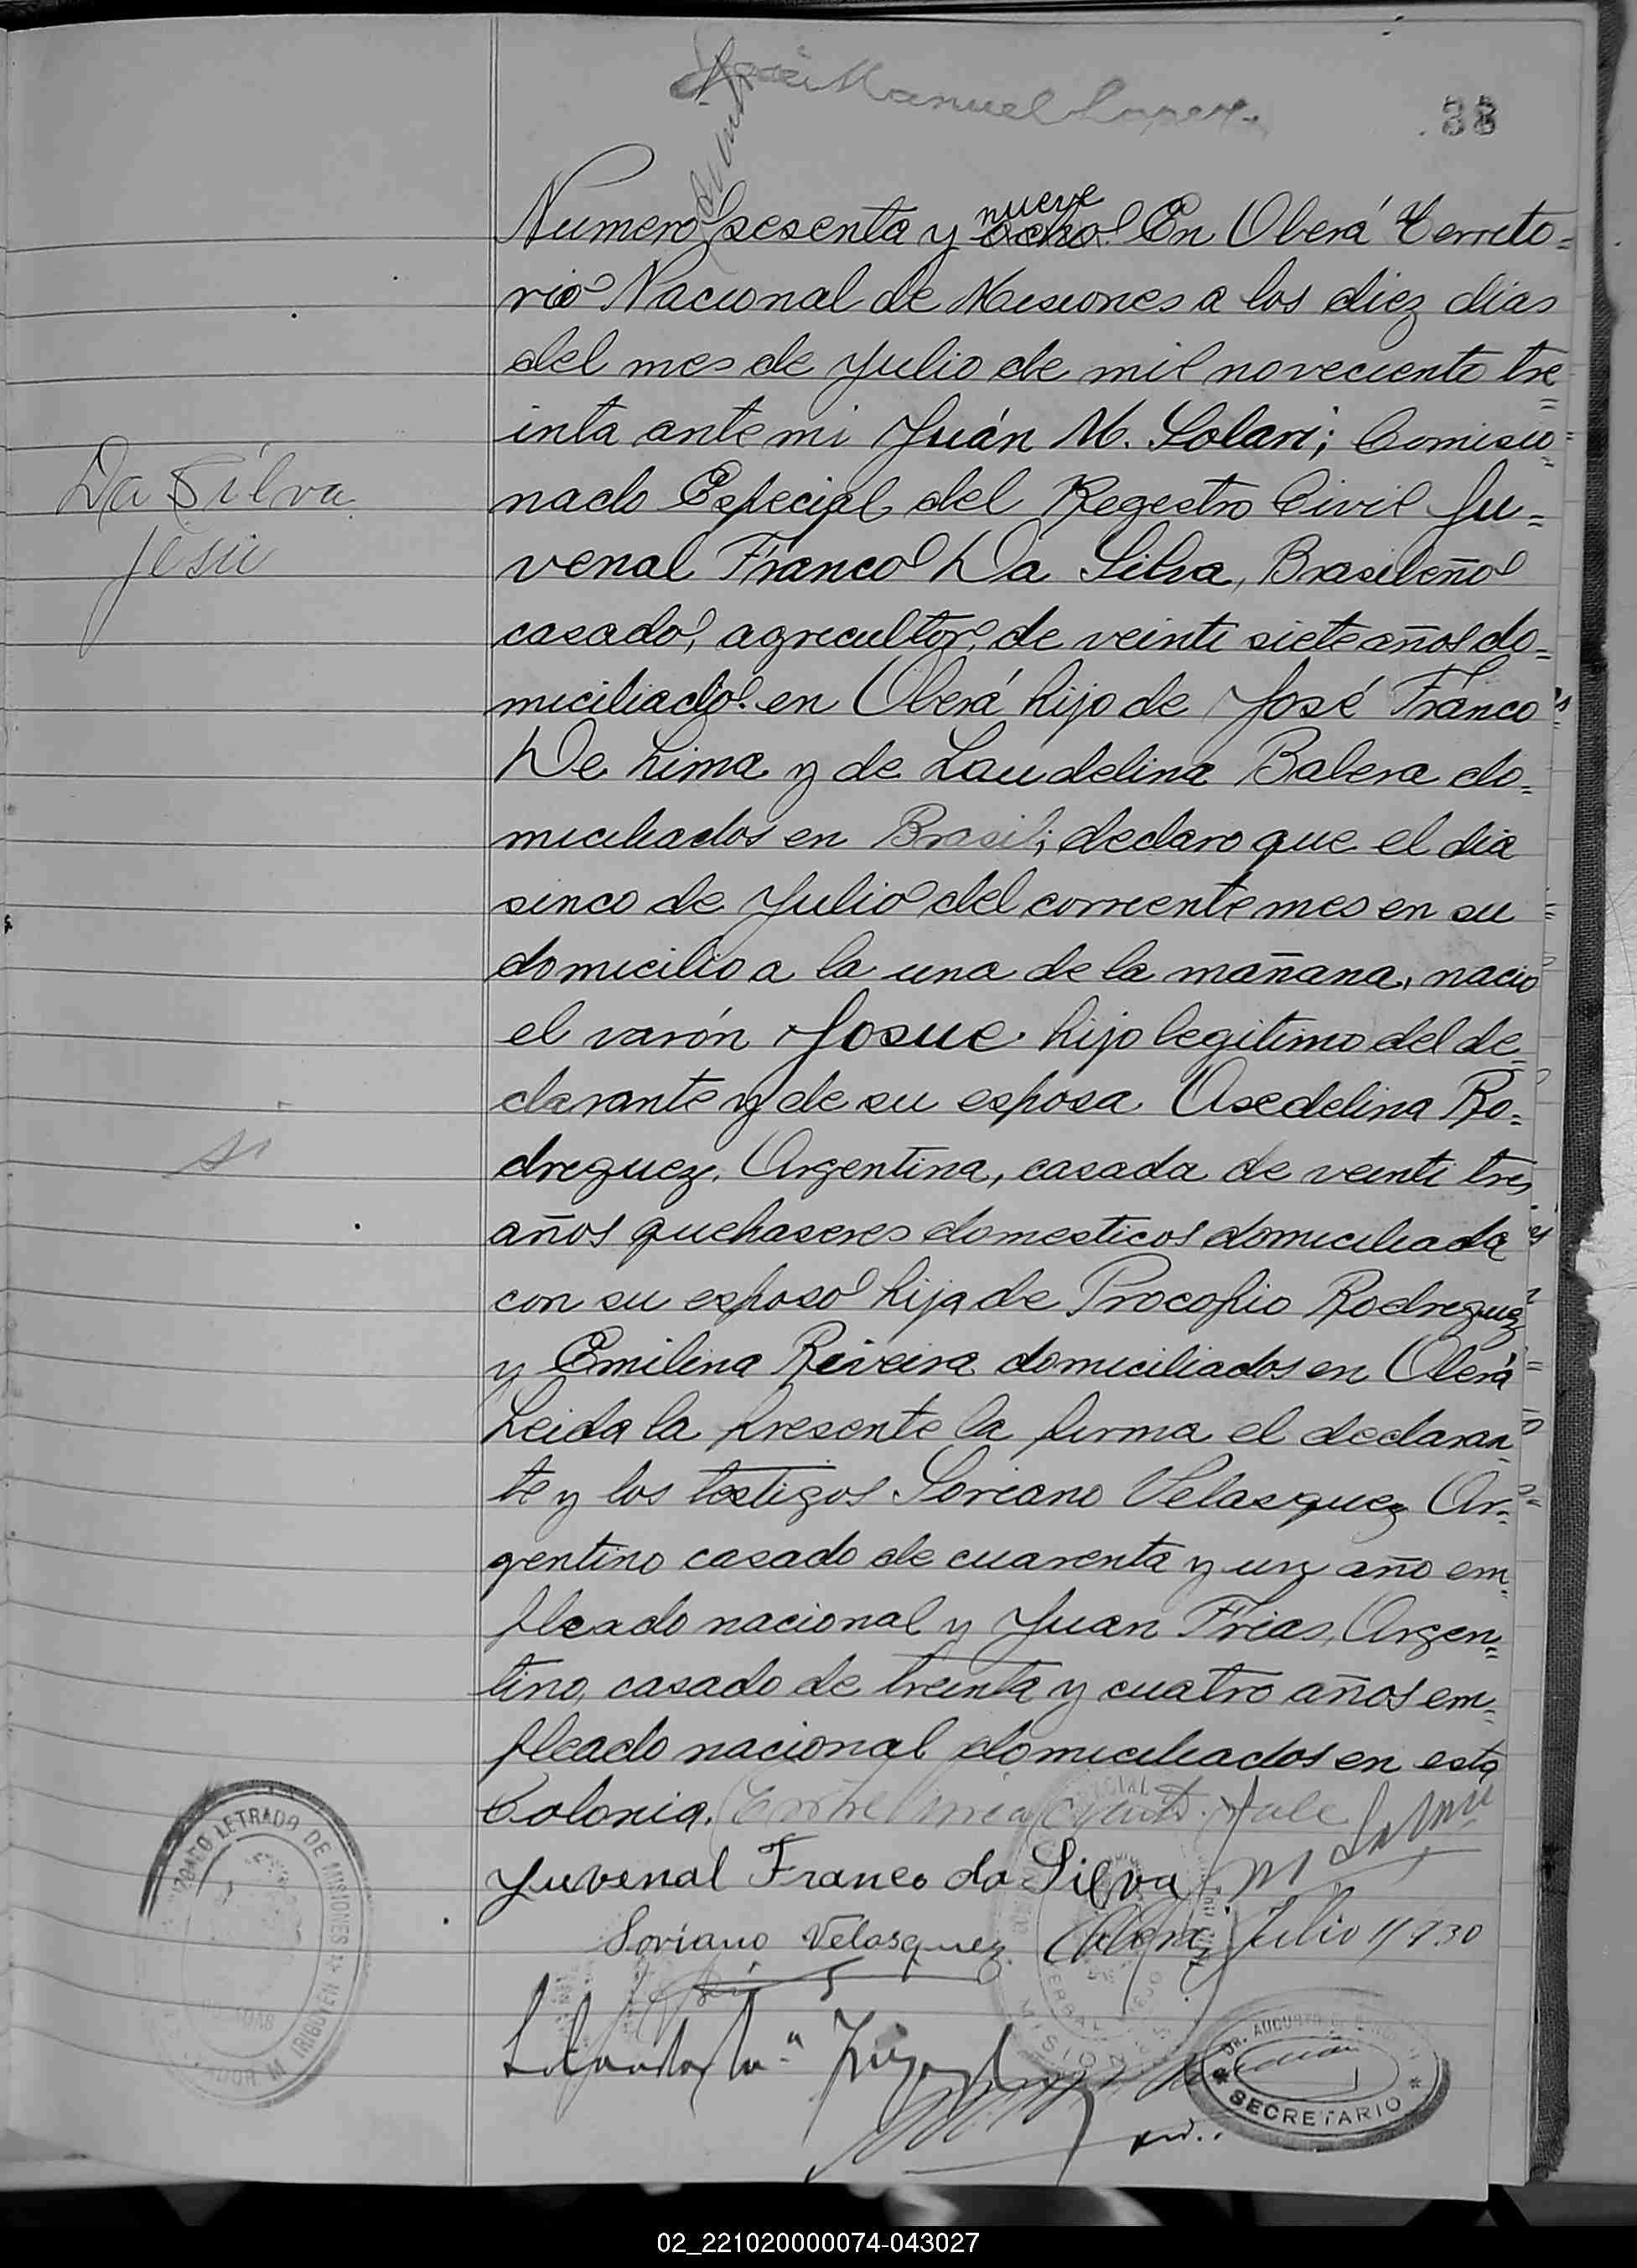 José Manuel Lopez.
38
Numero sesenta y ocho nueve En Oberá Territo=
rio Nacional de Misiones a los diez dias
del mes de Julio de mil noveciento tre
inta ante mi Juán M. Solari; Comisio=
nado Especial del Regestro Civil Ju=
venal Franco Da Silva, Brasileño
casado, agricultor, de veinti siete años do=
miciliado en Oberá hijo de José Franco
De Lima y de Laudelina Balera do=
miciliados en Brasil; declaro que el dia
sinco de Julio del corriente mes en su
domicilio a la una de la mañana, nacio
el varón Josue hijo legitimo del de=
clarante y de su esposa Asedelina Ro=
dreguez. Argentina, casada de veinti tres
años quehaseres domesticos domiciliada
con su esposo hija de Procopio Rodreguez
y Emilina Riveira domiciliados en Oberá
Leida la presente la firma el declaran
te y los testigos Soriano Velasquez Ar=
gentino casado de cuarenta y un año em=
pleado nacional y Juan Frias, Argen=
tino, casado de treinta y cuatro años em=
pleado nacional domiciliados en esta
Colonia.
Da Silva
Jesu
si
Yuvenal Franco da Silva
Soriano Velasquez Oberá Julio 11/930
LETRADO DE MISIONES
M IRIGOYEN
MISIONES
SECRETARIO
02_221020000074-043027